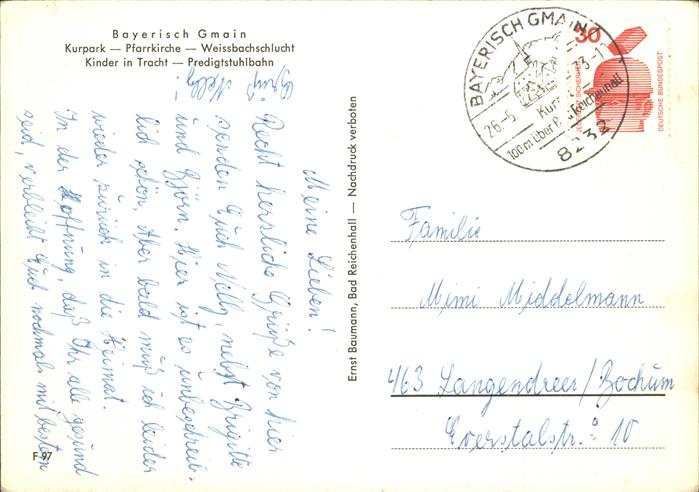 Bayerisch Gmain
Kurpark — Pfarrkirche — Weissbachschlucht
Kinder in Tracht — Predigtstuhlbahn
Meine Lieben!
Recht herzliche Grüße von hier
senden Euch Nelly, nebst Brigitte
und Björn. Hier ist es unbeschreib-
lich schön. Aber bald muß ich leider
wieder zurück in die Heimat.
In der Hoffnung, daß Ihr alle gesund
seid, verbleibt Euch nochmals mit besten
Gruß
Nelly –
F 97
Ernst Baumann, Bad Reichenhall — Nachdruck verboten
BAYERISCH GMAIN
26.-5
73-1
100 m über Bad Reichenhall
8232
30
DEUTSCHE BUNDESPOST
Familie
Mimi Middelmann
463 Langendreer/Bochum
Everstalstr. 10